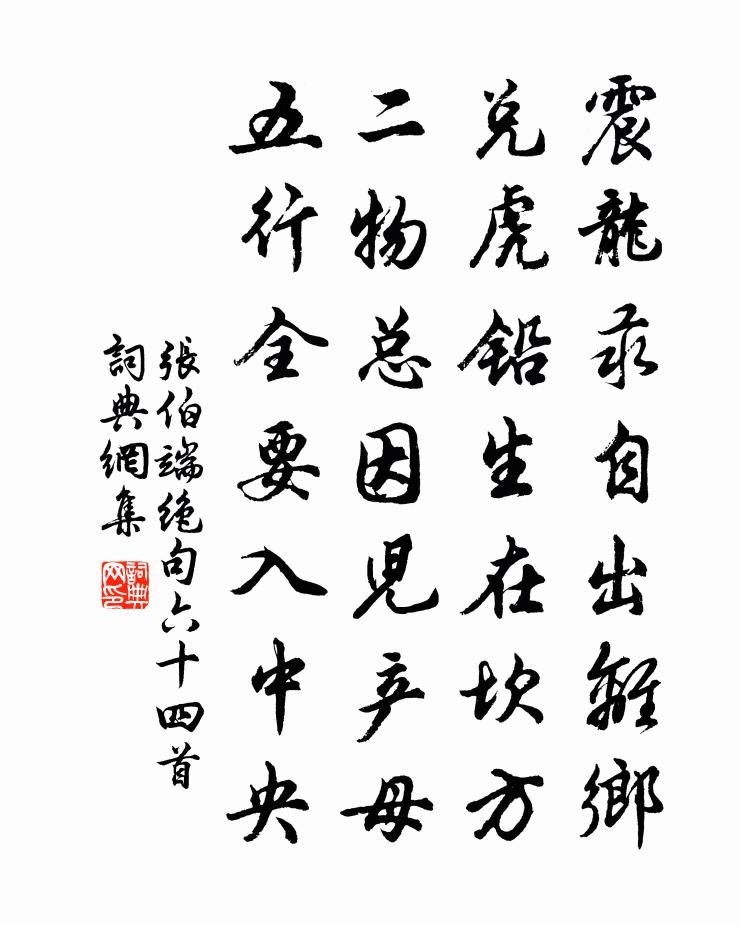 震龍汞自出離鄉
兌虎鉛生在坎方
二物总因児产母
五行全要入中央
張伯端絶句六十四首
詞典網集
詞典网印